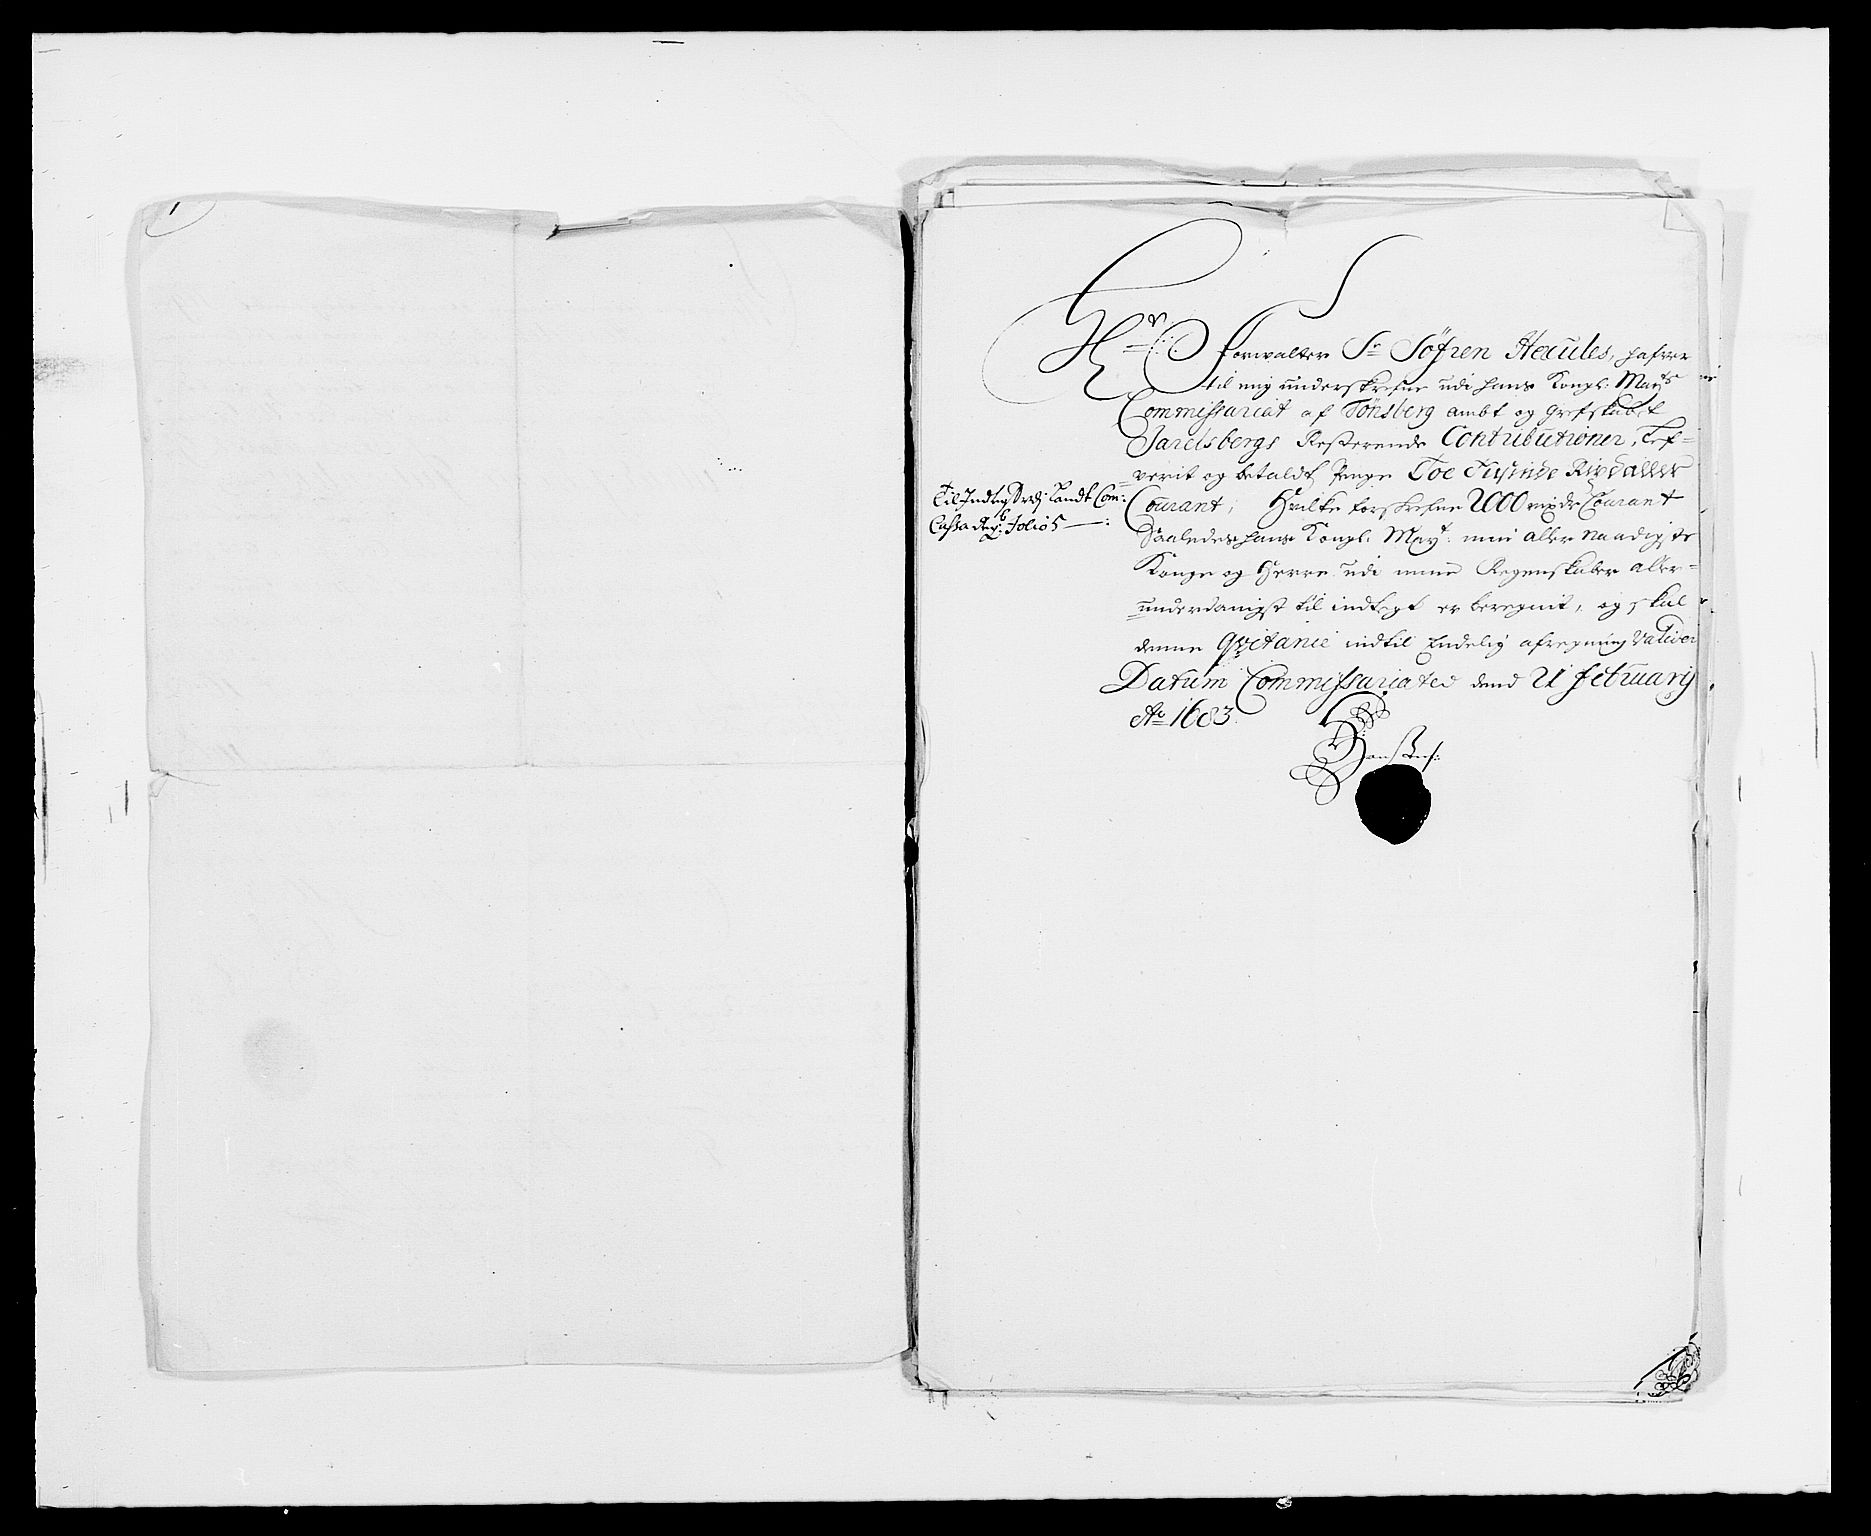 Hr Forwalter Sr Söfren Hercules, hafver
til mig underskrefne udi hans Kongl: Mayts
Commissariat af Tönsberg ambt og grefskabet
Jarelsbergs Resterende Contributioner, Lef=
verit og betaldt penge Toe Tusinde Rixdaller
Courant, Hvilke forskrefne 2000 rixdr Courant
Saaledes hans Kongl: Mayt: min aller naadigste
Konge og Herre udi mine Regenskaber aller=
underdanigst til indtegt er beregnit, og skal
denne Qvitancie indtil Endelig afregning Valider
Datum Commissariated dend 21 February
Ao 1683.
Til Indteg Landt Com:
Cassa Reg: Folio 5
Hans